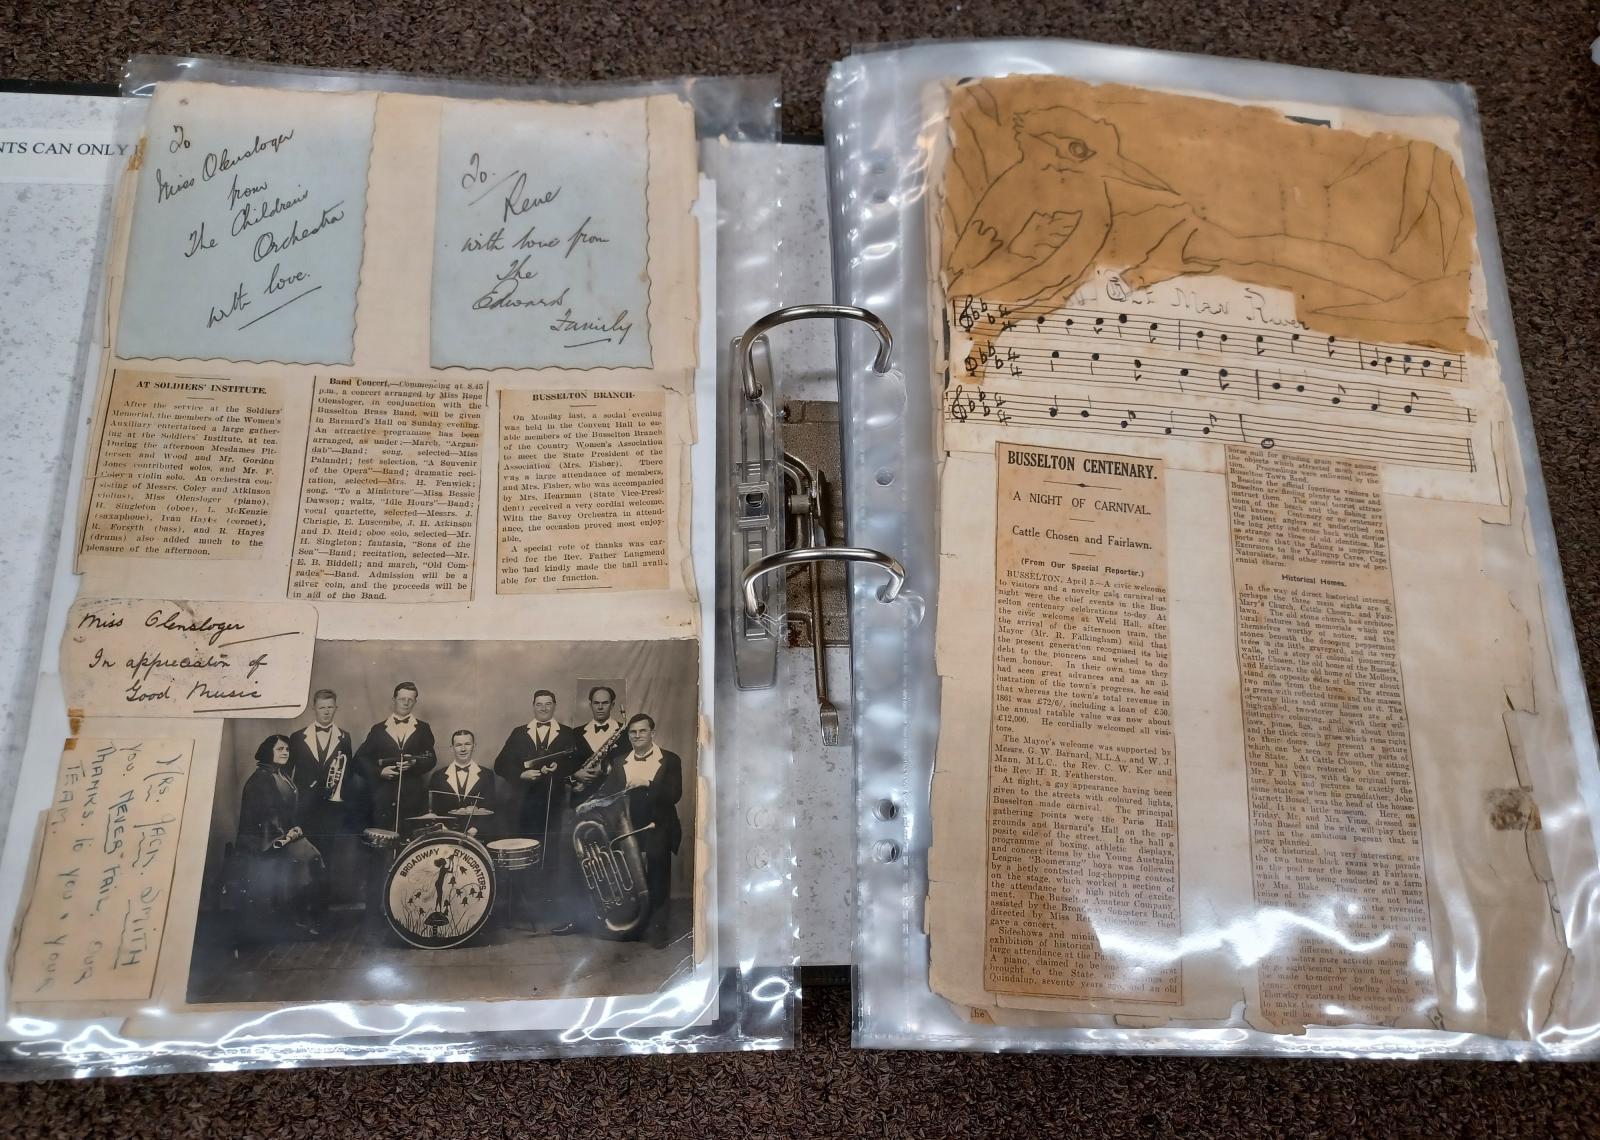 NTS CAN ONLY
To
Miss Olensloger
from
The Children's
Orchestra
with love.
To
Rene
with love from
The
Edwards
Family
AT SOLDIERS' INSTITUTE.
After the service at the Soldiers'
Memorial, the members of the Women's
Auxiliary entertained a large gather-
ing at the Soldiers' Institute, at tea.
During the afternoon Mesdames Pit-
tersen and Wood and Mr. Gordon
Jones contributed solos, and Mr. F.
Coley a violin solo. An orchestra con-
sisting of Messrs. Coley and Atkinson
(violins), Miss Olensloger (piano),
H. Singleton (oboe), L. McKenzie
(saxaphone), Ivan Hayes (cornet),
R. Forsyth (bass), and R. Hayes
(drums) also added much to the
pleasure of the afternoon.
Band Concert.—Commencing at 8.45
p.m., a concert arranged by Miss Rene
Olensloger, in conjunction with the
Busselton Brass Band, will be given
in Barnard's Hall on Sunday evening.
An attractive programme has been
arranged, as under:—March, "Argan-
dab"—Band; song, selected—Miss
Palandri; test selection, "A Souvenir
of the Opera"—Band; dramatic reci-
tation, selected—Mrs. H. Fenwick;
song, "To a Miniature"—Miss Bessie
Dawson; waltz, "Idle Hours"—Band;
vocal quartette, selected—Messrs. J.
Christie, E. Luscombe, J. H. Atkinson
and D. Reid; oboe solo, selected—Mr.
H. Singleton; fantasia, "Sons of the
Sea"—Band; recitation, selected—Mr.
E. B. Biddell; and march, "Old Com-
rades"—Band. Admission will be a
silver coin, and the proceeds will be
in aid of the Band.
BUSSELTON BRANCH-
On Monday last, a social evening
was held in the Convent Hall to en-
able members of the Busselton Branch
of the Country Women's Association
to meet the State President of the
Association (Mrs. Fisher). There
was a large attendance of members,
and Mrs. Fisher, who was accompanied
by Mrs. Hearman (State Vice-Presi-
dent) received a very cordial welcome.
With the Savoy Orchestra in attend-
ance, the occasion proved most enjoy-
able.
A special vote of thanks was car-
ried for the Rev. Father Langmead
who had kindly made the hall avail-
able for the function.
Miss Olensloger
In appreciation of
Good Music
MRS. JACK. SMITH
YOU. NEVER. FAIL. OUR
THANKS. To YOU & YOUR
TEAM.
BROADWAY SYNCOPATERS
Ol' Man River
BUSSELTON CENTENARY.
A NIGHT OF CARNIVAL.
Cattle Chosen and Fairlawn.
(From Our Special Reporter.)
BUSSELTON, April 5.—A civic welcome
to visitors and a novelty gala carnival at
night were the chief events in the Bus-
selton centenary celebrations to-day. At
the civic welcome at Weld Hall, after
the arrival of the afternoon train, the
Mayor (Mr. R. Falkingham) said that
the present generation recognised its big
debt to the pioneers and wished to do
them honour. In their own time they
had seen great advances and as an il-
lustration of the town's progress, he said
that whereas the town's total revenue in
1861 was £72/6/, including a loan of £50,
the annual ratable value was now about
£12,000. He cordially welcomed all visi-
tors.
The Mayor's welcome was supported by
Messrs. G. W. Barnard, M.L.A., and W. J.
Mann, M.L.C., the Rev. C. W. Ker and
the Rev. H. R. Featherston.
At night, a gay appearance having been
given to the streets with coloured lights,
Busselton made carnival. The principal
gathering points were the Paris Hall
grounds and Barnard's Hall on the op-
posite side of the street. In the hall a
programme of boxing, athletic displays,
and concert items by the Young Australia
League "Boomerang" boys was followed
by a hotly contested log-chopping contest
on the stage, which worked a section of
the attendance to a high pitch of excite-
ment. The Busselton Amateur Company,
assisted by the Broadway Songsters Band,
directed by Miss Olensloger, then
gave a concert.
Sideshows and
exhibition of historical
large attendance at the Paris
A piano, claimed to be first
brought to the State,
Quindalup, seventy years ago, and an old
horse mill for grinding grain were among
the objects which attracted much atten-
tion. Proceedings were enlivened by the
Busselton Town Band.
Besides the official functions visitors to
Busselton are finding plenty to amuse and
instruct them. The usual tourist attrac-
tions of the beach and the fishing are
well known. Centenary or no centenary
the patient anglers sit undisturbed on
the long jetty and come back with stories
as strange as those of old identities. Re-
ports are that the fishing is improving.
Excursions to the Yallingup Caves, Cape
Naturaliste, and other resorts are of per-
ennial charm.
Historical Homes.
In the way of direct historical interest,
perhaps the three main sights are S.
Mary's Church, Cattle Chosen, and Fair-
lawn. The old stone church has architec-
tural features and memorials which are
themselves worthy of notice, and the
stones beneath the drooping peppermint
trees in its little graveyard, and its very
walls, tell a story of colonial pioneering.
Cattle Chosen, the old home of the Bussels,
and Fairlawn, the old home of the Molloys,
stand on opposite sides of the river about
two miles from the town. The stream
is green with reflected trees and the masses
of water lilies and arum lilies on it. The
high-gabled, two-storey houses are of a
distinctive colouring, and, with their wil-
lows, pines, figs, and lilacs about them
and the thick couch grass which runs right
to their doors, they present a picture
which can be seen in few other parts of
the State. At Cattle Chosen, the sitting
room has been restored by the owner,
Mr. F. B. Vines, with the original furni-
ture, books and pictures to exactly the
same state as when his grandfather, John
Garnett Bussel, was the head of the house-
hold. It is a little museum. Here, on
Friday, Mr. and Mrs. Vines, dressed as
John Bussel and his wife, will play their
part in the ambitious pageant that is
being planned.
Not historical, but very interesting, are
the two tame black swans who parade
in the pool near the house at Fairlawn,
which is now being conducted as a farm
by Mrs. Blake. There are still many